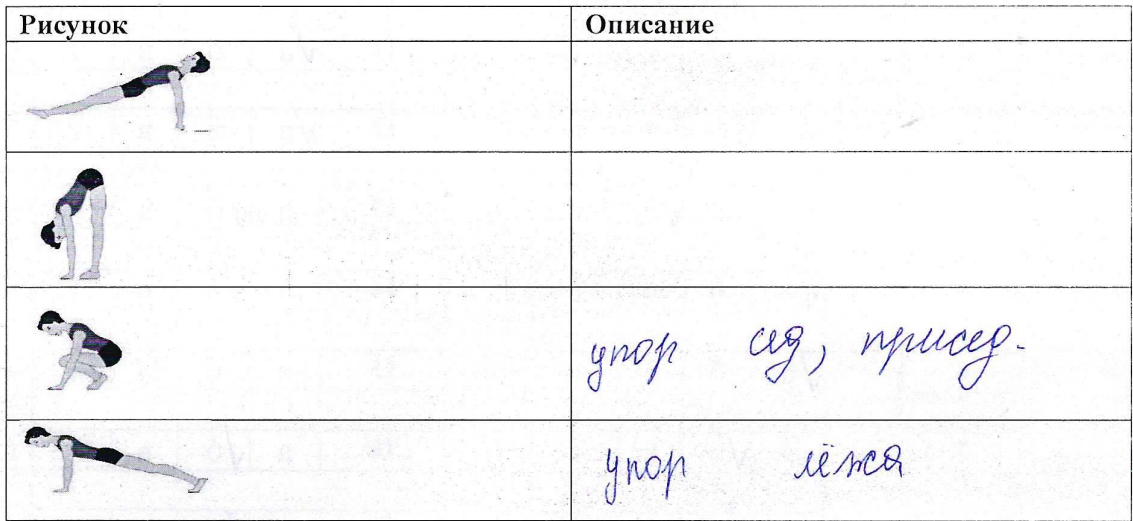 Рисунок Описание
упор сед, присед.
упор лёжа